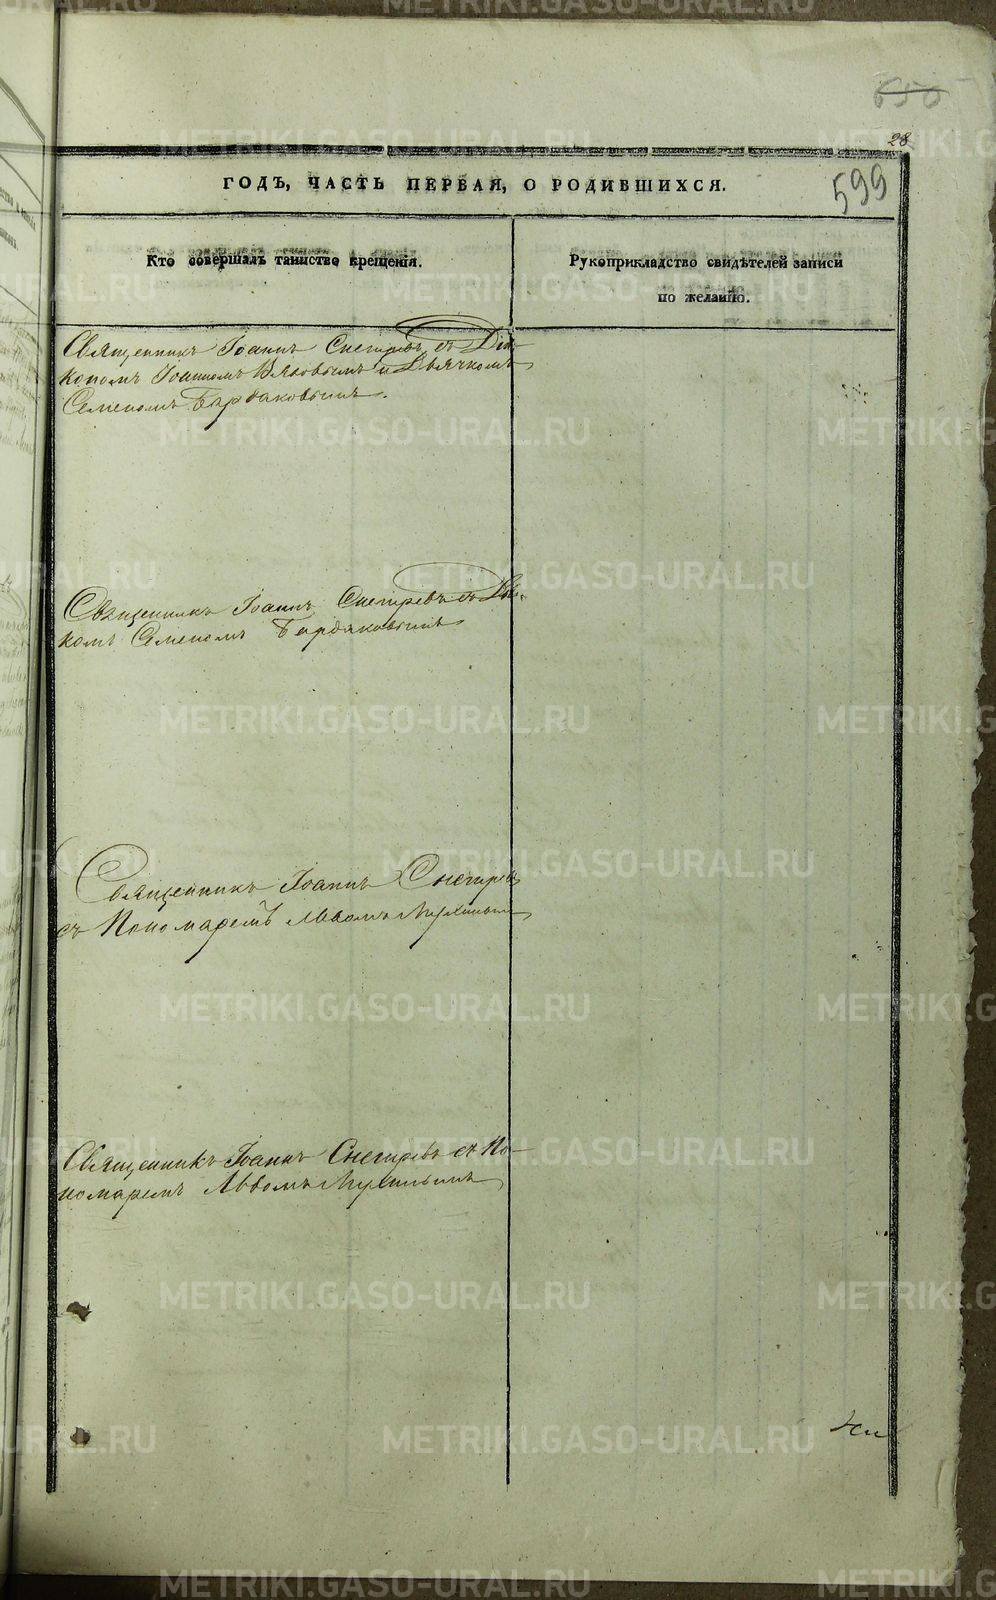 28
599
ГОДЪ, ЧАСТЬ ПЕРВАЯ, О РОДИВШИХСЯ.
Кто совершалъ таинство крещенія.
Рукоприкладство свидѣтелей записи
по желанію.
Священникъ Іоаннъ Снегиревъ съ Діа-
кономъ Іоанномъ Вяловымъ и Дьячкомъ
Семеномъ Бардаковымъ.
Священникъ Іоаннъ Снегиревъ съ Дьяч-
комъ Семеномъ Бардаковымъ
Священникъ Іоаннъ Снегиревъ
съ Пономаремъ Львомъ Мухинымъ
Священникъ Іоаннъ Снегиревъ съ По-
номаремъ Львомъ Мухинымъ
METRIKI.GASO-URAL.RU